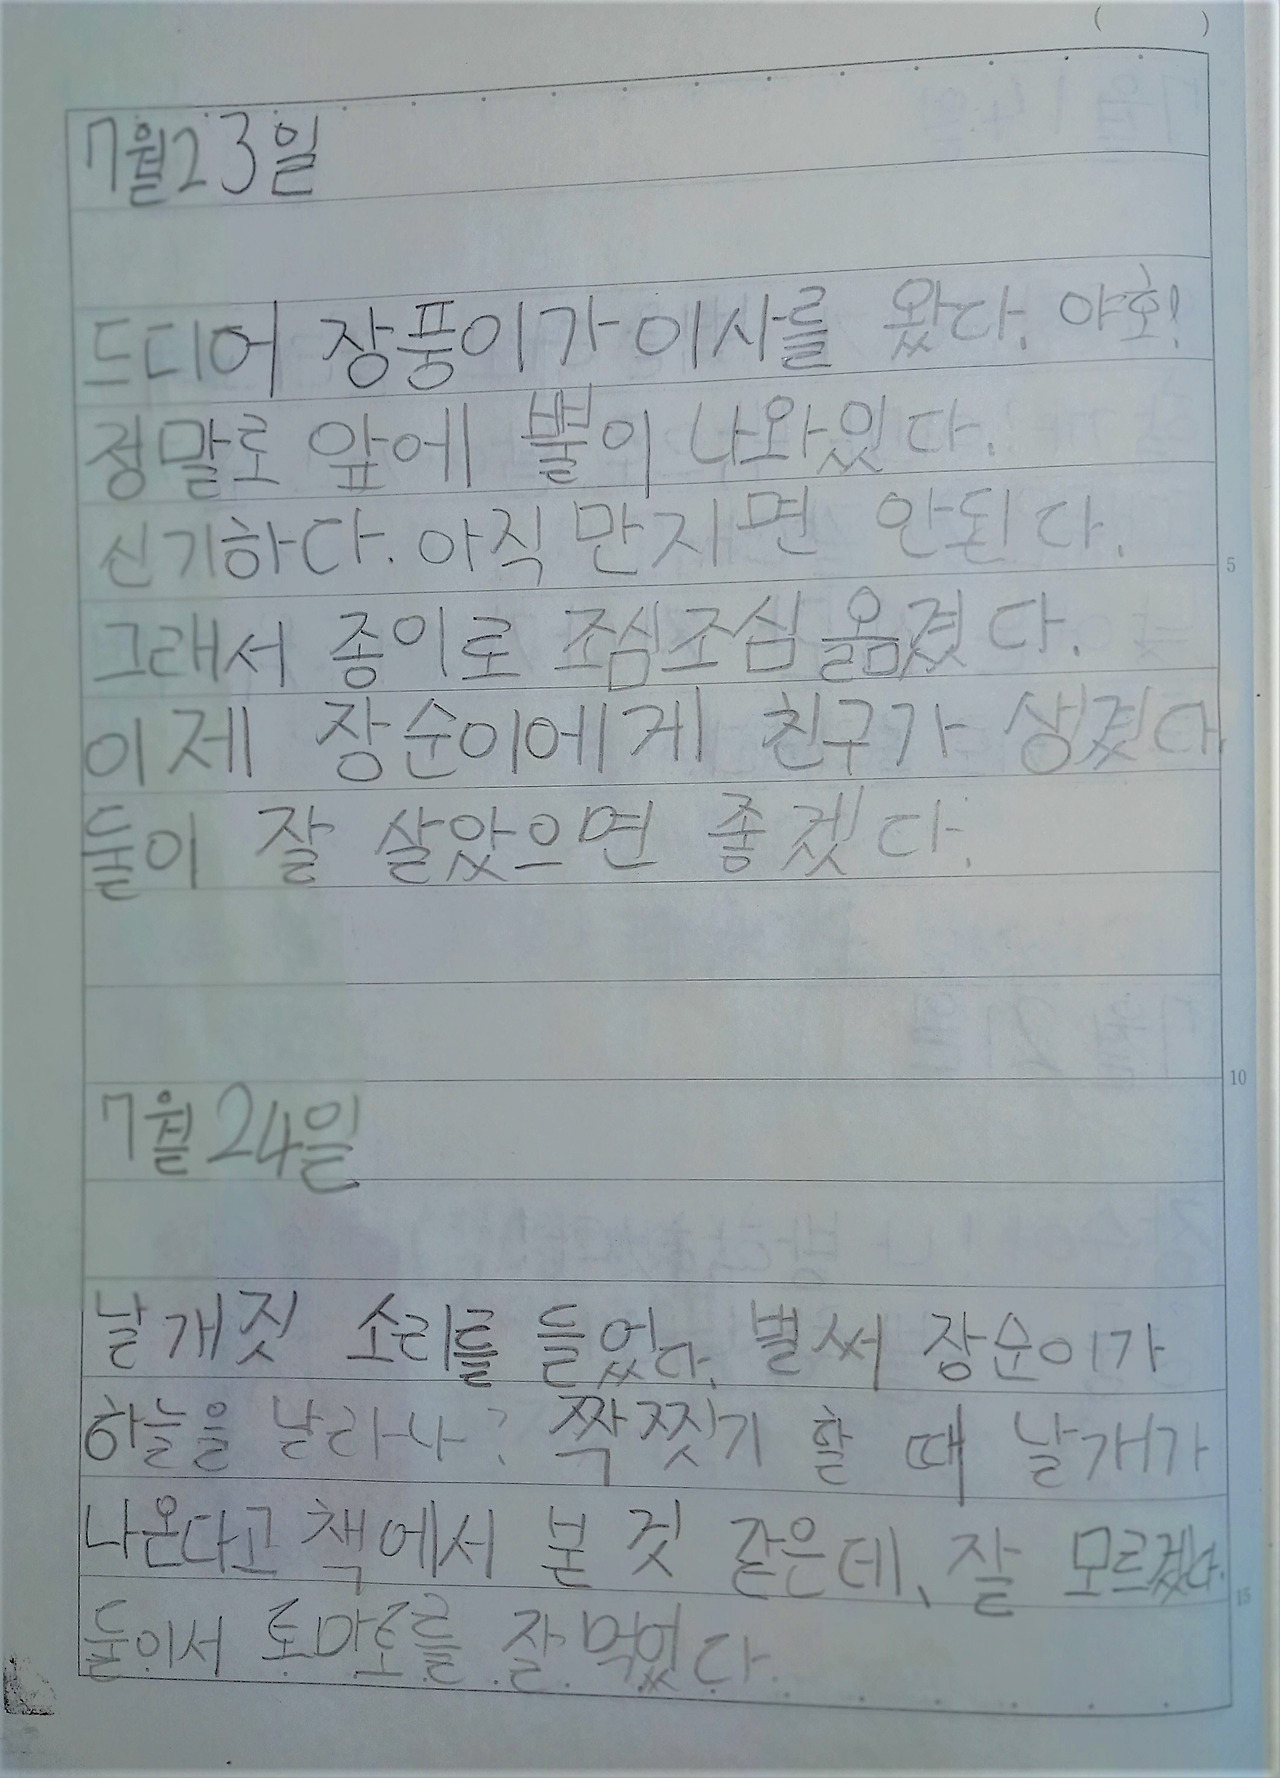 7월23일
드디어 장풍이가 이사를 왔다. 야호!
정말로 앞에 뿔이 나와있다.
신기하다. 아직 만지면 안된다.
그래서 종이로 조심조심 옮겼다.
이제 장순이에게 친구가 생겼다.
둘이 잘 살았으면 좋겠다.
7월 24일
날개짓 소리를 들었다. 벌써 장순이가
하늘을 날라나? 짝찟기 할 때 날개가
나온다고 책에서 본 것 같은데, 잘 모르겠다.
둘이서 토마토를 잘 먹었다.
5
10
15